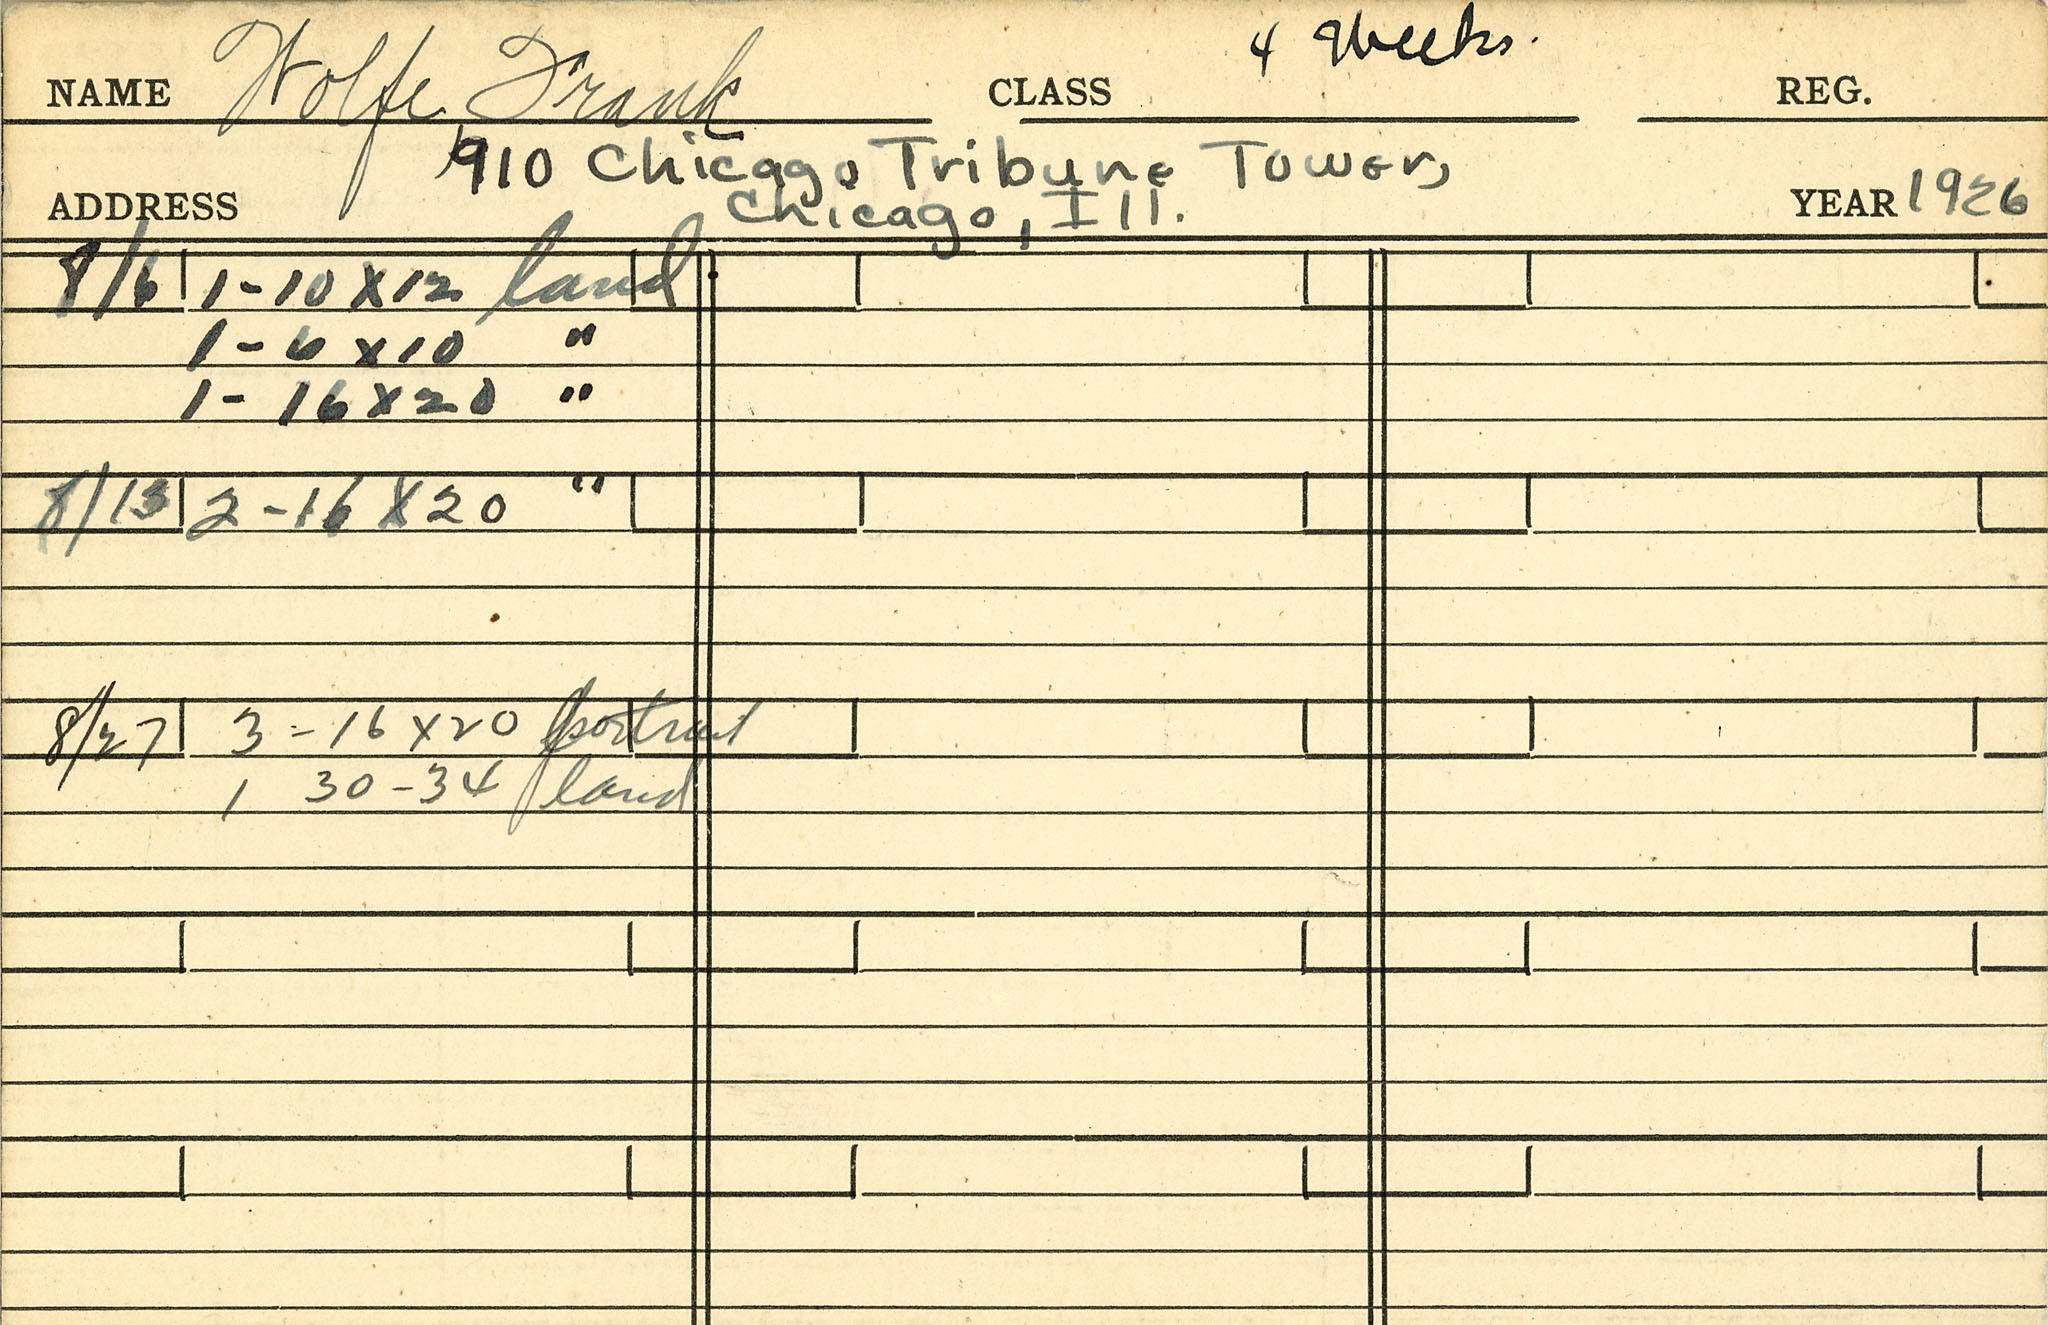 NAME Wolfe Frank CLASS 4 Weeks. REG.
910 Chicago Tribune Tower,
ADDRESS Chicago, Ill. YEAR 1926
8/6 1-10 x 12 land
1-6 x 10 "
1-16 x 20 "
8/13 2-16 x 20 "
8/27 3-16 x 20 portrait
1 30-34 land